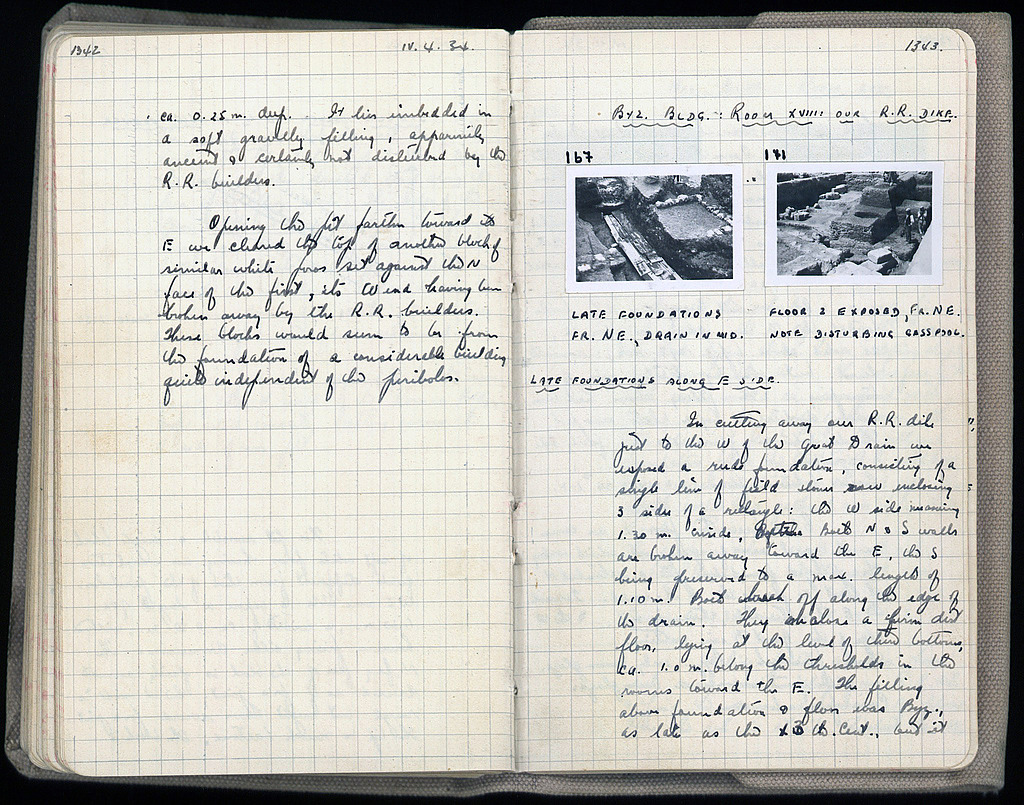 1342
IV. 4. 34.
ca. 0.25 m. deep. It lies imbedded in
a soft gravelly filling, apparently
ancient & certainly not disturbed by the
R.R. builders.
Opening the pit farther toward the
E we cleared the top of another block of
similar white poros set against the N
face of the first, its W end having been
broken away by the R.R. builders.
These blocks would seem to be from
the foundation of a considerable building
quite independent of the peribolos.
1343.
BYZ. BLDG.: ROOM XVIII: OUR R.R. DIKE.
167
171
LATE FOUNDATIONS
FR. NE., DRAIN IN MID.
FLOOR 2 EXPOSED, FR. NE.
NOTE DISTURBING CESSPOOL.
LATE FOUNDATIONS ALONG E SIDE.
In cutting away our R.R. dike
just to the W of the Great Drain we
exposed a rude foundation, consisting of a
single line of field stones enclosing
3 sides of a rectangle: the W side measuring
1.30 m. inside, Both N & S walls
are broken away toward the E, the S
being preserved to a max. length of
1.10 m. Both break off along the edge of
the drain. They enclose a firm dirt
floor, lying at the level of their bottoms,
ca. 1.0 m. below the thresholds in the
rooms toward the E. The filling
above foundation & floor was Byz.,
as late as the th. Cent., and it